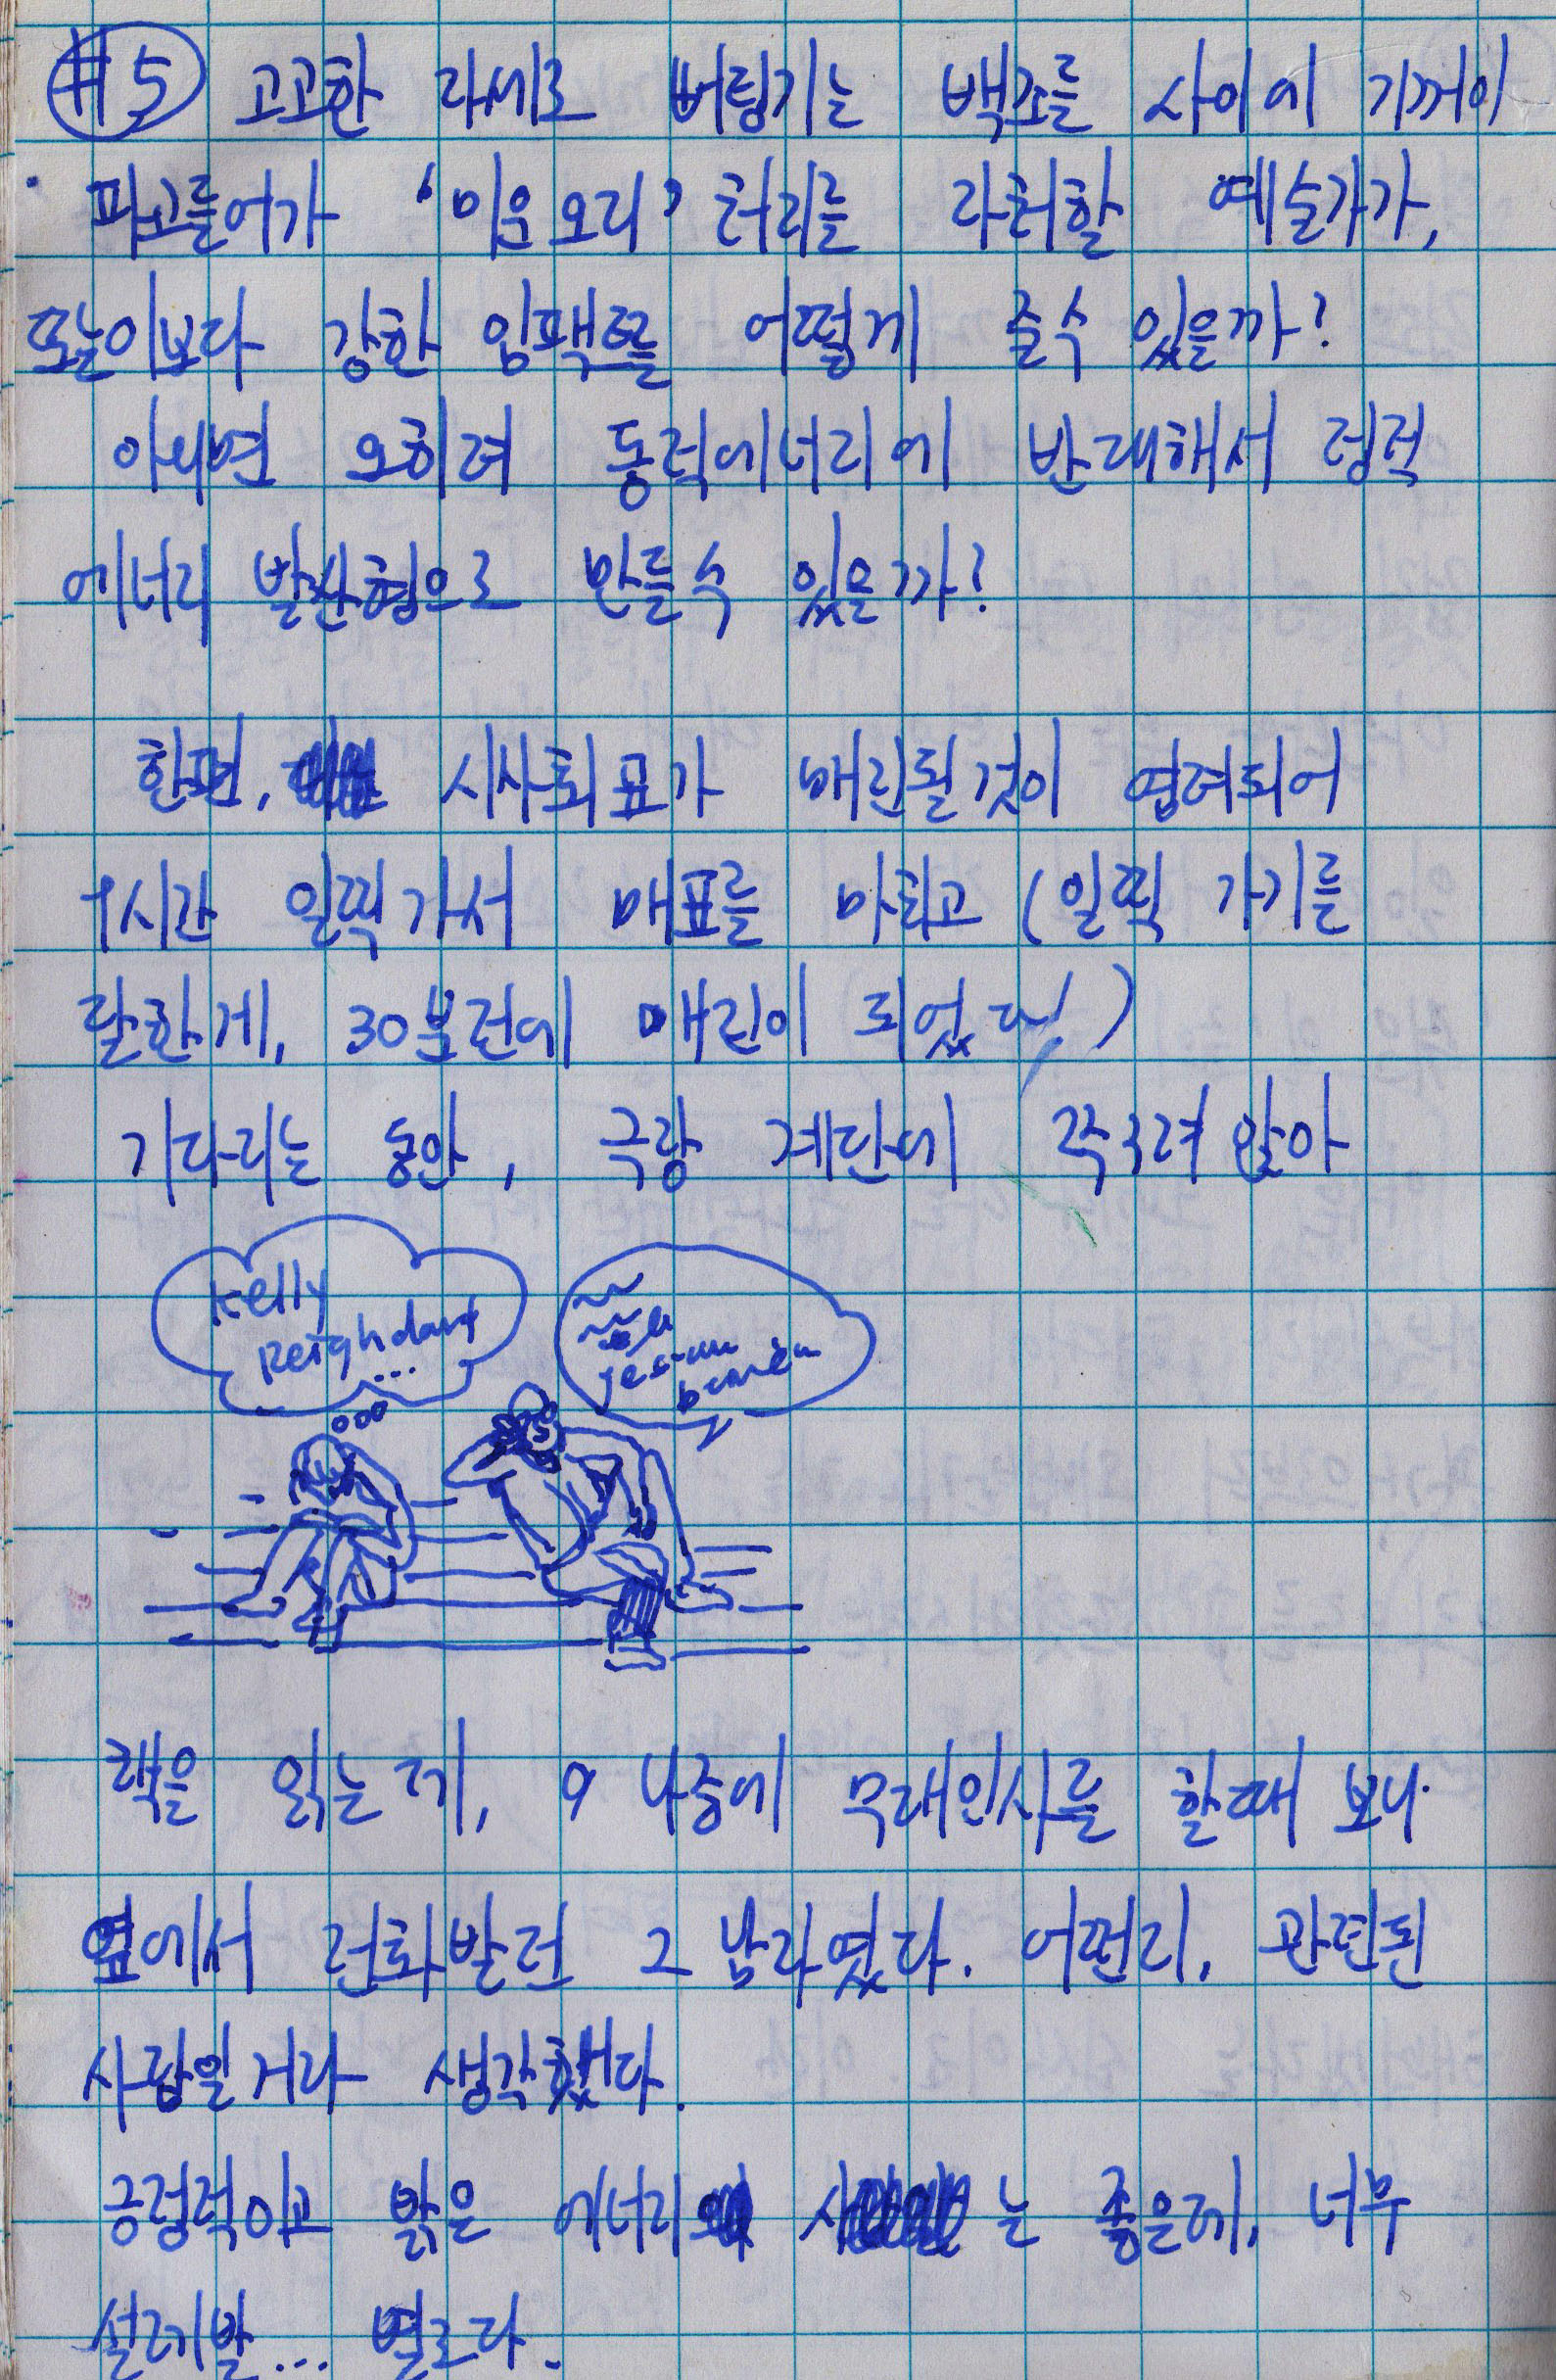 #5 고고한 자세로 버팅기는 백조들 사이에 기꺼이
파고들어가 '미운오리' 처리를 자처할 예술가가,
또는 이보다 강한 임팩트를 어떻게 줄수 있을까?
아니면 오히려 동적에너지에 반대해서 정적
에너지 발산형으로 만들수 있을까?
한편, 시사회표가 매진될것이 염려되어
1시간 일찍가서 매표를 마치고 (일찍 가기를
잘한게, 30분전에 매진이 되었다!)
기다리는 동안, 극장 계단에 쭈그려 앉아
Kelly
Reighdart
...
책을 읽는데, 나중에 무대인사를 할때 보니
옆에서 전화받던 그 남자였다. 어쩐지, 관련된
사람일거라 생각했다.
긍정적이고 밝은 에너지 는 좋은데, 너무
설레발... 별로다.